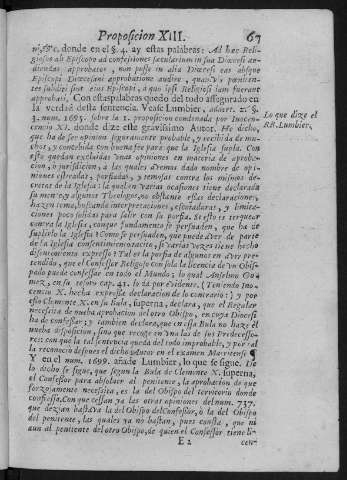 Proposicion XIII. 67
ni, &c. donde en el §. 4. ay estas palabras: Ad hæc Reli-
giosos ab Episcopo ad confessiones sæcularium in sua Diœcesi au-
diendas approbatos, non posse in alia Diœcesi eas absque
Episcopi Diœcesani approbatione audire, quamvis pœniten-
tes subditi sint eius Episcopi, a quo ipsi Religiosi iam fuerant
approbati. Con estas palabras quedò del todo assegurado en
la verdad desta sentencia. Vease Lumbier, adarr. 2. §.
3. num. 1695. sobre la 1. proposicion condenada por Inocen-
cio XI. donde dize este gravissimo Autor. He dicho,
que ha de ser opinion seguramente probable, y recibida de mu-
chos, y contenida con buena fee para que la Iglesia supla. Con
esto quedan excluidas unas opiniones en materia de aproba-
cion, ò jurisdicion, a las quales avemos dado nombre de opi-
niones estreladas, porfiadas, y remosas contra los mismos de-
cretos de la Iglesia: la qual en varias ocasiones tiene declarada
su mente, y algunos Theologos, no obstante essas declaraciones,
hazen tema, buscando interpretaciones, escutadaras, y limita-
ciones poco solidas para salir con su porfia. Si esto es terquear
contra la Iglesia, con que fundamento se persuaden, que ha de
suplirlo la Iglesia? Como se persuaden, que puede aver de parte
de la Iglesia consentimiento tacito, si varias vezes tiene hecho
dissentimiento expresso? Tal es la porfia de algunos en aver pre-
tendido, que el Confessor Religioso con sola la licencia de un Obis-
pado puede confessar en todo el Mundo; lo qual Anselmo Go-
mez, en su tesoro cap. 41. lo dà por evidente. (Teniendo Ino-
cencio X. hecha expressa declaracion de lo contrario) y por
esso Clemente X. en su Bula, superna, declara, que el Regular
necessita de nueva aprobacion del otro Obispo, en cuya Diocesi
ha de confessar; y tambien declara, que en essa Bula no haze el
nueva disposicion, sino que recoge en una las de sus Predecesso-
res: con que la tal sentencia queda del todo improbable, y por tal
la reconocio despues el dicho Autor en el examen Matritense ¶
Y en el num. 1699. añade Lumbier, lo que se sigue. De
lo dicho se sigue, que segun la Bula de Clemente X. superna,
el Confessor para absolver al penitente, la aprobacion de que
forzosamente necessita, es la del Obispo del territorio donde
confiessa. Con que cessan ya las otras opiniones del num. 737.
que dezian bastava la del Obispo del Confessor, ò la del Obispo
del penitente, las quales ya no bastan, pues consta, que ni
aun al penitente del otro Obispo, de quien el Confessor tiene li-
E 2 cen-
Lo que dize el
RR. Lumbier.